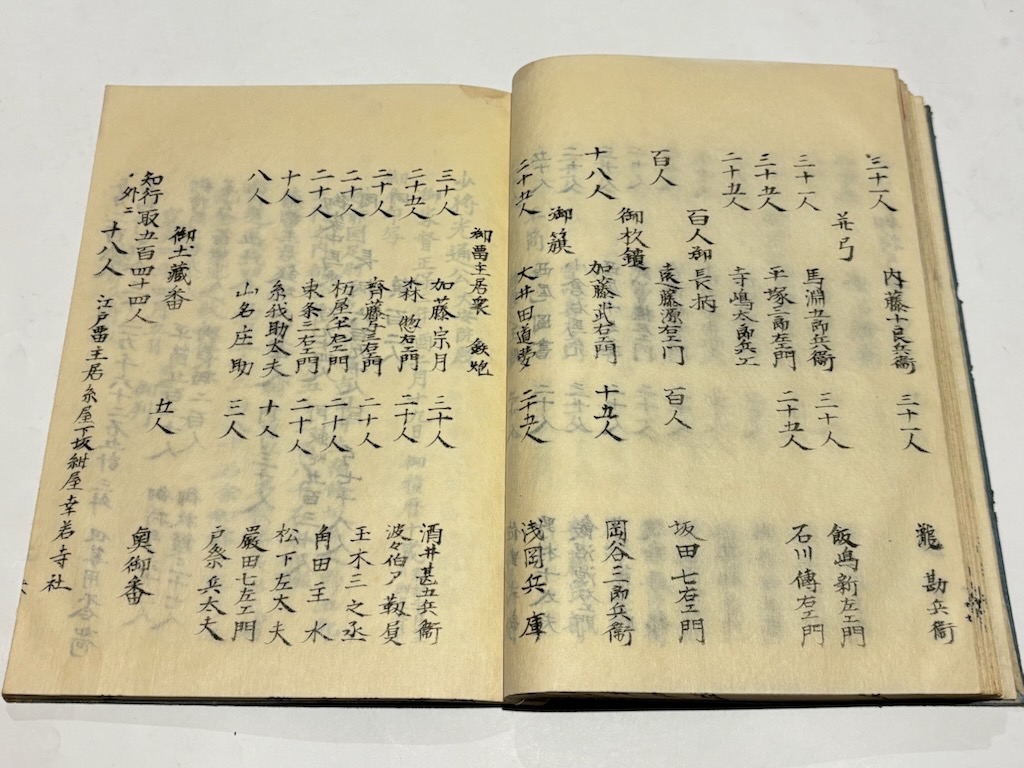 三十一人 内藤十良兵衛 三十一人 瀧勘兵衛
并弓
三十一人 馬淵五郎兵衛 三十人 飯嶋新左エ門
二十五人 平塚三郎左門 二十五人 石川傳右エ門
二十五人 寺嶋太郎兵エ
百人御長柄
百人 遠藤源右エ門 百人 坂田七右エ門
御杖鑓
十八人 加藤武右エ門 十九人 岡谷三郎兵衛
御籏
二十五人 大井田道夢 二十五人 浅岡兵庫
御畄主居衆 鉄炮
三十人 加藤宗月 三十人 酒井甚五兵衛
二十五人 森惣右エ門 二十人 波々伯ア靱負
二十人 齊藤与三右門 二十人 玉木三之丞
二十人 杤屋左エ門 二十人 角田主水
二十人 東条三右エ門 二十人 松下左太夫
十人 糸我助太夫 十人 嚴田七左エ門
八人 山名庄助 三人 戸祭兵太夫
御土藏番 五人 奥御番
知行取五百四十四人
・外ニ 十八人 江戸畄主居糸屋下坂紺屋幸若寺社